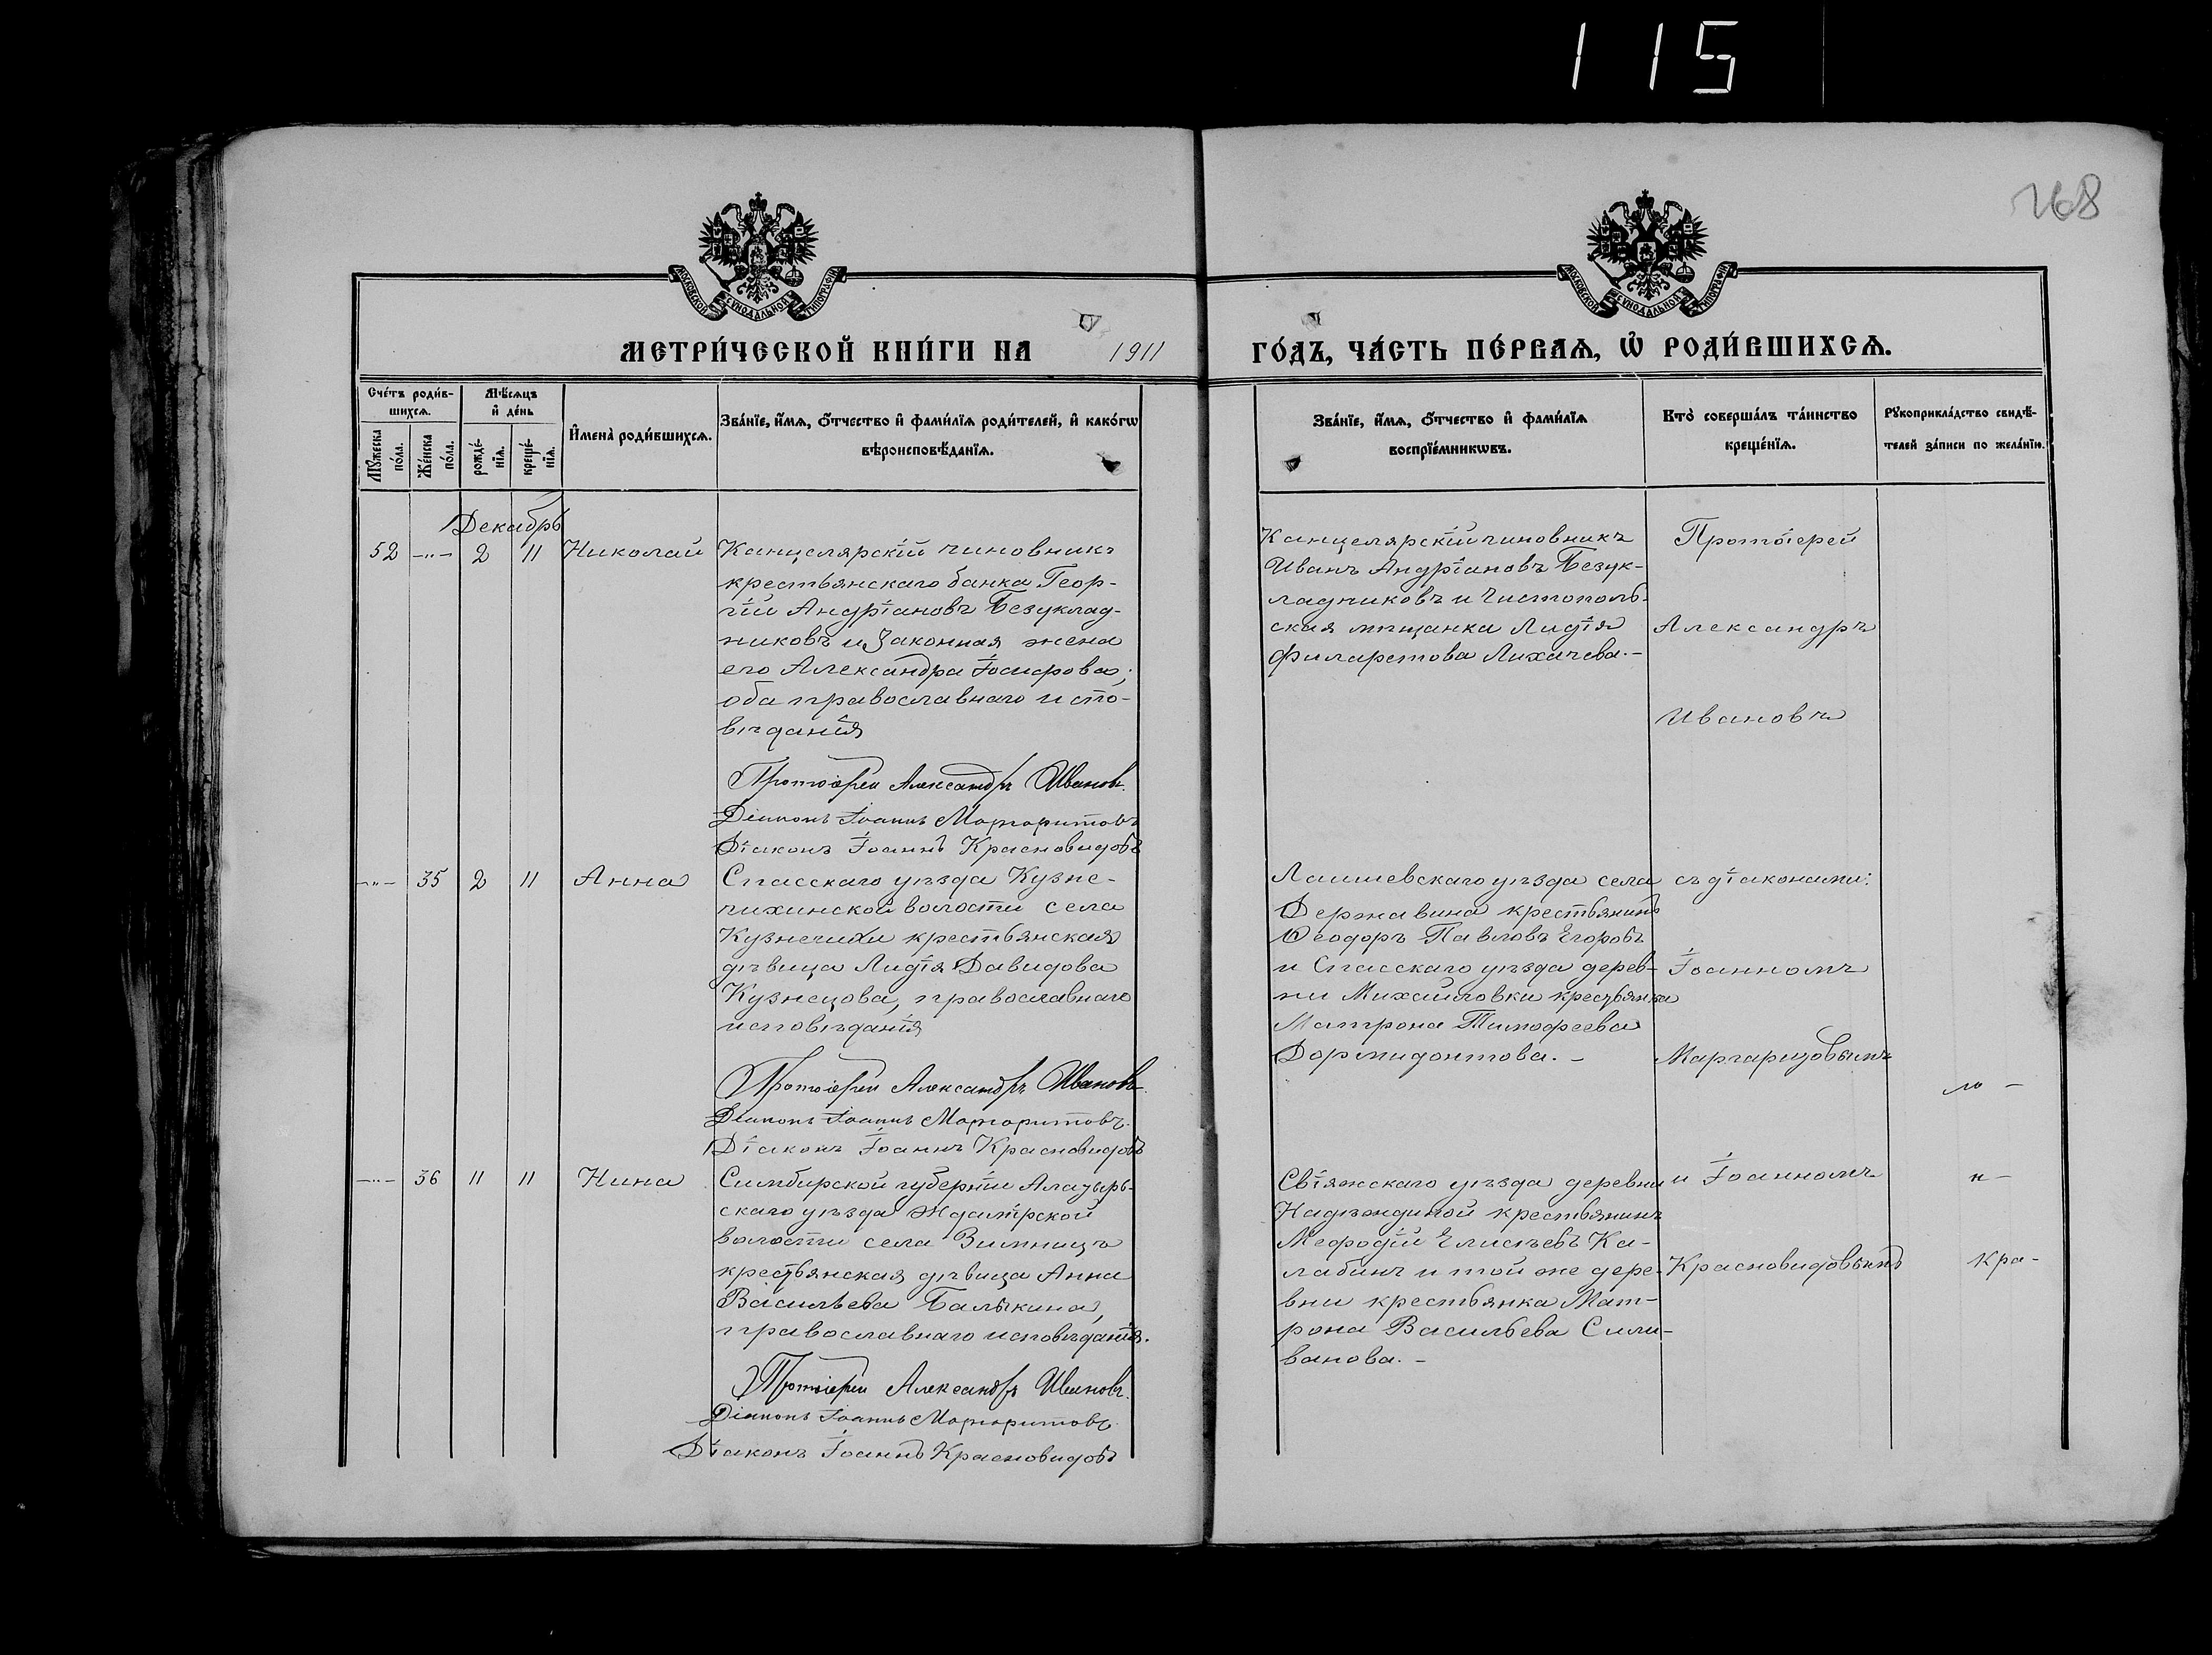 115
268
МОСКОВСКОЙ СѴНОДАЛЬНОЙ ТИПОГРАФІИ
МОСКОВСКОЙ СѴНОДАЛЬНОЙ ТИПОГРАФІИ
МЕТРИ́ЧЕСКОЙ КНИ́ГИ НА 1911
ГО́ДЪ, ЧА́СТЬ ПЕ́РВАѦ, Ѡ҆ РОДИ́ВШИХСѦ.
Сче́тъ роди́в-
шихсѧ.
Мꙋ́жеска
по́ла.
Же́нска
по́ла.
Мѣ́сѧцъ
и҆ де́нь
рожде́-
нїѧ.
креще́-
нїѧ.
И҆мена̀ роди́вшихсѧ.
Зва́нїе, и҆́мѧ, ѻ҆́тчество и҆ фами́лїѧ роди́телей, и҆ како́гѡ
вѣроисповѣ́данїѧ.
Зва́нїе, и҆́мѧ, ѻ҆́тчество и҆ фами́лїѧ
воспрїе́мникѡвъ.
Кто̀ соверша́лъ та́инство
креще́нїѧ.
Рꙋкоприкла́дство свидѣ́-
телей за́писи по жела́нїю.
Декабрь
52 -„- 2 11 Николай
Канцелярскій чиновникъ
крестьянскаго банка Геор-
гій Андріановъ Безуклад-
никовъ и законная жена
его Александра Іосифова;
оба православнаго испо-
вѣданія
Протоіерей Александръ Ивановъ.
Діаконъ Іоаннъ Маргаритовъ
Діаконъ Іоаннъ Красновидовъ
Канцелярскій чиновникъ
Иванъ Андріановъ Безук-
ладниковъ и Чистополь-
ская мѣщанка Лидія
Филаретова Лихачева.-
Протоіерей
Александръ
Ивановъ
-„- 35 2 11 Анна
Спасскаго уѣзда Кузне-
чихинской волости села
Кузнечихи крестьянская
дѣвица Лидія Давидова
Кузнецова, православнаго
исповѣданія
Протоіерей Александръ Ивановъ.
Діаконъ Іоаннъ Маргаритовъ.
Діаконъ Іоаннъ Красновидовъ
Лаишевскаго уѣзда села
Державина крестьянинъ
Ѳеодоръ Павловъ Егоровъ
и Спасскаго уѣзда дерев-
ни Михайловки крестьянка
Матрона Тимофеева
Дормидонтова.-
съ діаконами:
Іоанномъ
Маргаритовымъ
-„- 36 11 11 Нина
Симбирской губерніи Алатырь-
скаго уѣзда Ждамірской
волости села Зимницъ
крестьянская дѣвица Анна
Васильева Балыкина,
православнаго исповѣданія.
Протоіерей Александръ Ивановъ.
Діаконъ Іоаннъ Маргаритовъ.
Діаконъ Іоаннъ Красновидовъ
Свіяжскаго уѣзда деревни
крестьянинъ
Мефодій Елисѣевъ Ка-
лабинъ и той же дере-
вни крестьянка Мат-
рона Васильева Сили-
ванова.-
и Іоанномъ
Красновидовымъ
н-
кра-